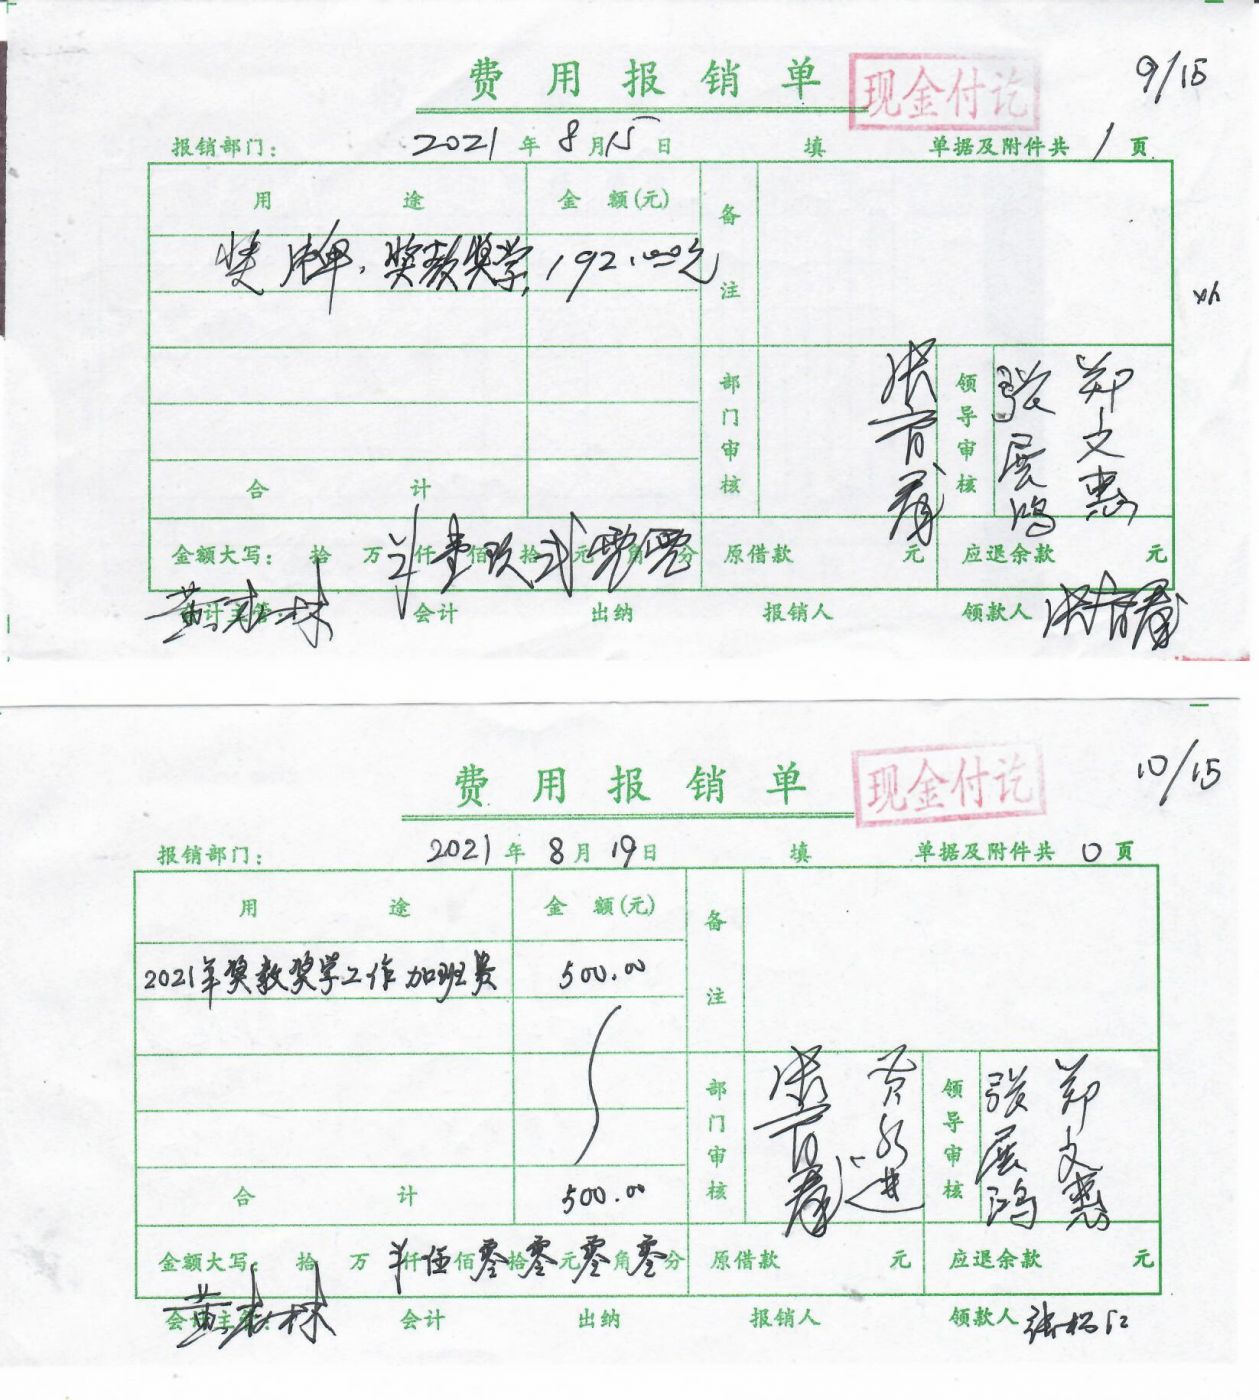 费用报销单 现金付讫 9/15
报销部门: 2021年8月15日 填 单据及附件共1页
用途 金额(元) 备注
奖牌、奖教奖学 192.00元
部门审核 领导审核 张展鸿 郑文惠
合计
金额大写: 拾万 仟壹佰玖拾贰元零角零分 原借款 元 应退余款 元
会计主管: 黄志林 会计 出纳 报销人 领款人
费用报销单 现金付讫 10/15
报销部门: 2021年8月19日 填 单据及附件共0页
用途 金额(元) 备注
2021年奖教奖学工作加班费 500.00
部门审核 领导审核 张展鸿 郑文惠
合计 500.00
金额大写: 拾万 仟伍佰零拾零元零角零分 原借款 元 应退余款 元
会计主管: 黄志林 会计 出纳 报销人 领款人